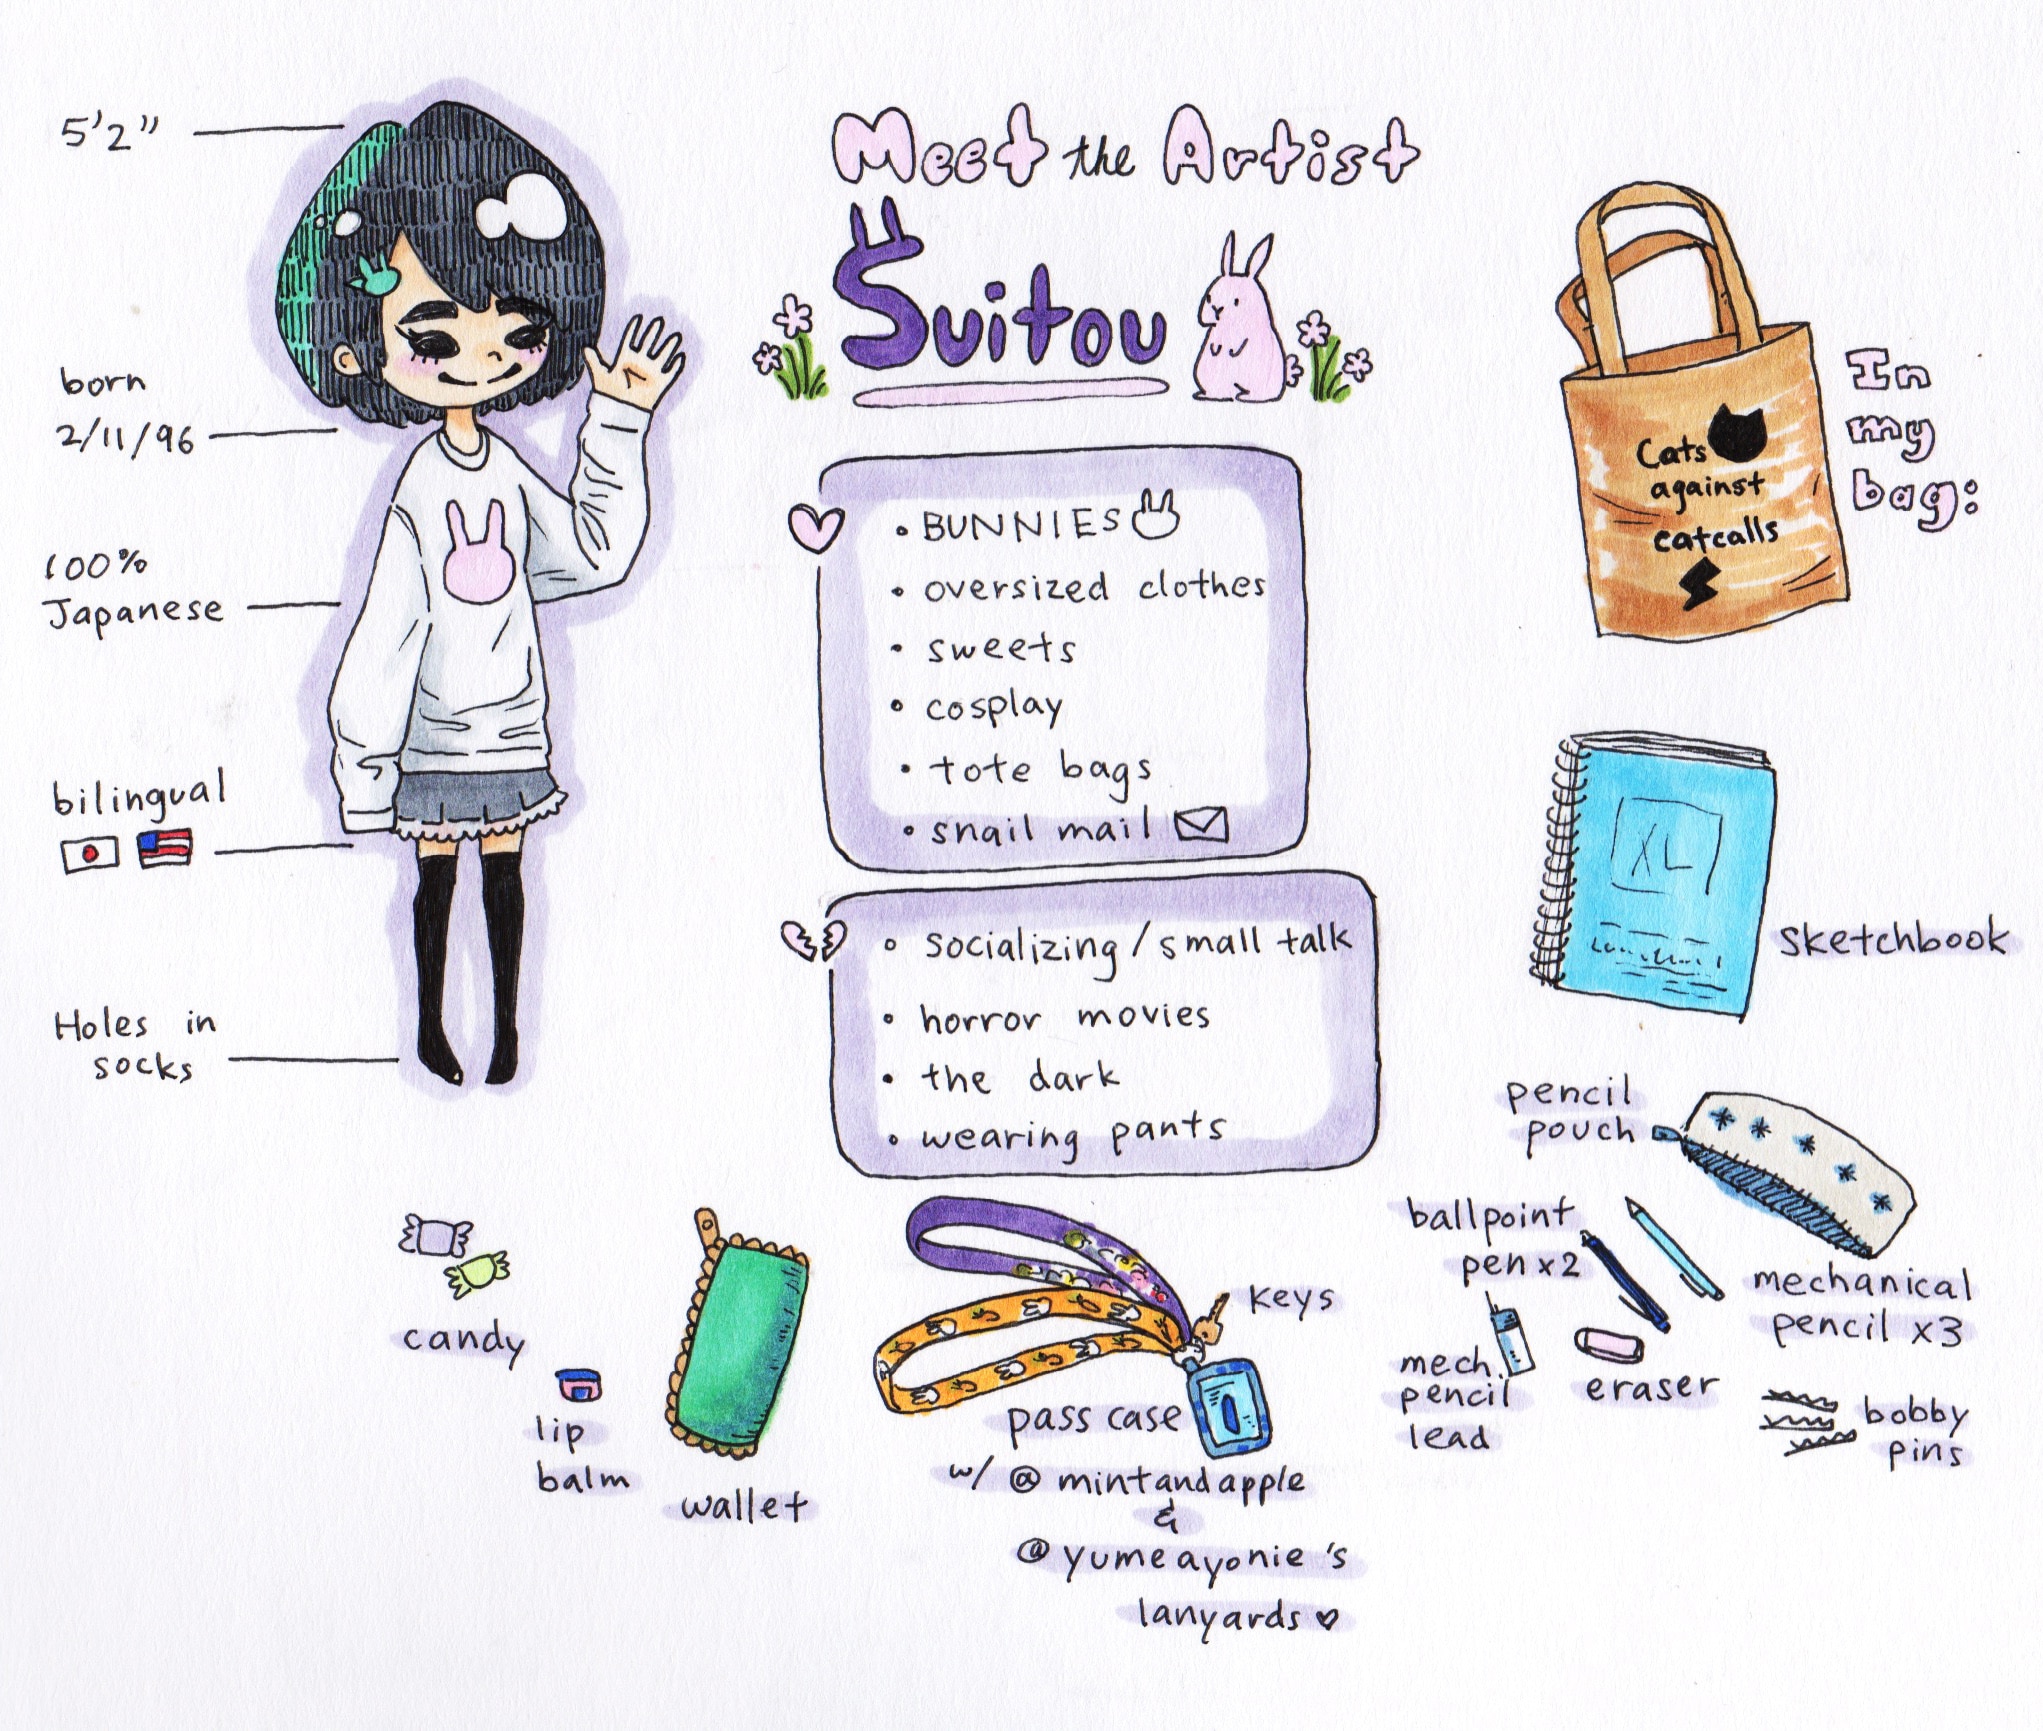 Meet the Artist
Suitou
5'2"
born
2/11/96
100%
Japanese
bilingual
Holes in
socks
• BUNNIES
• oversized clothes
• sweets
• cosplay
• tote bags
• snail mail
• socializing/small talk
• horror movies
• the dark
• wearing pants
In
my
bag:
Cats
against
catcalls
XL
sketchbook
pencil
pouch
ballpoint
pen x2
mechanical
pencil x3
mech.
pencil
lead
eraser
bobby
pins
keys
pass case
w/ @mintandapple
&
@yumeayonie's
lanyards ♥
wallet
lip
balm
candy